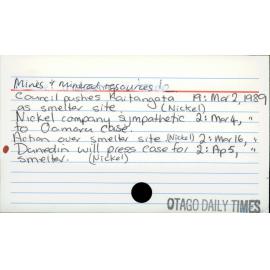 Mines & mineral resources
Council pushes Kaitangata 19: Mar 2, 1989
as smelter site. (Nickel)
Nickel company sympathetic 2: Mar 4, "
to Oamaru case.
Action over smelter site (Nickel) 2: Mar 16, "
Dunedin will press case for 2: Ap 5, "
smelter. (Nickel)
OTAGO DAILY TIMES